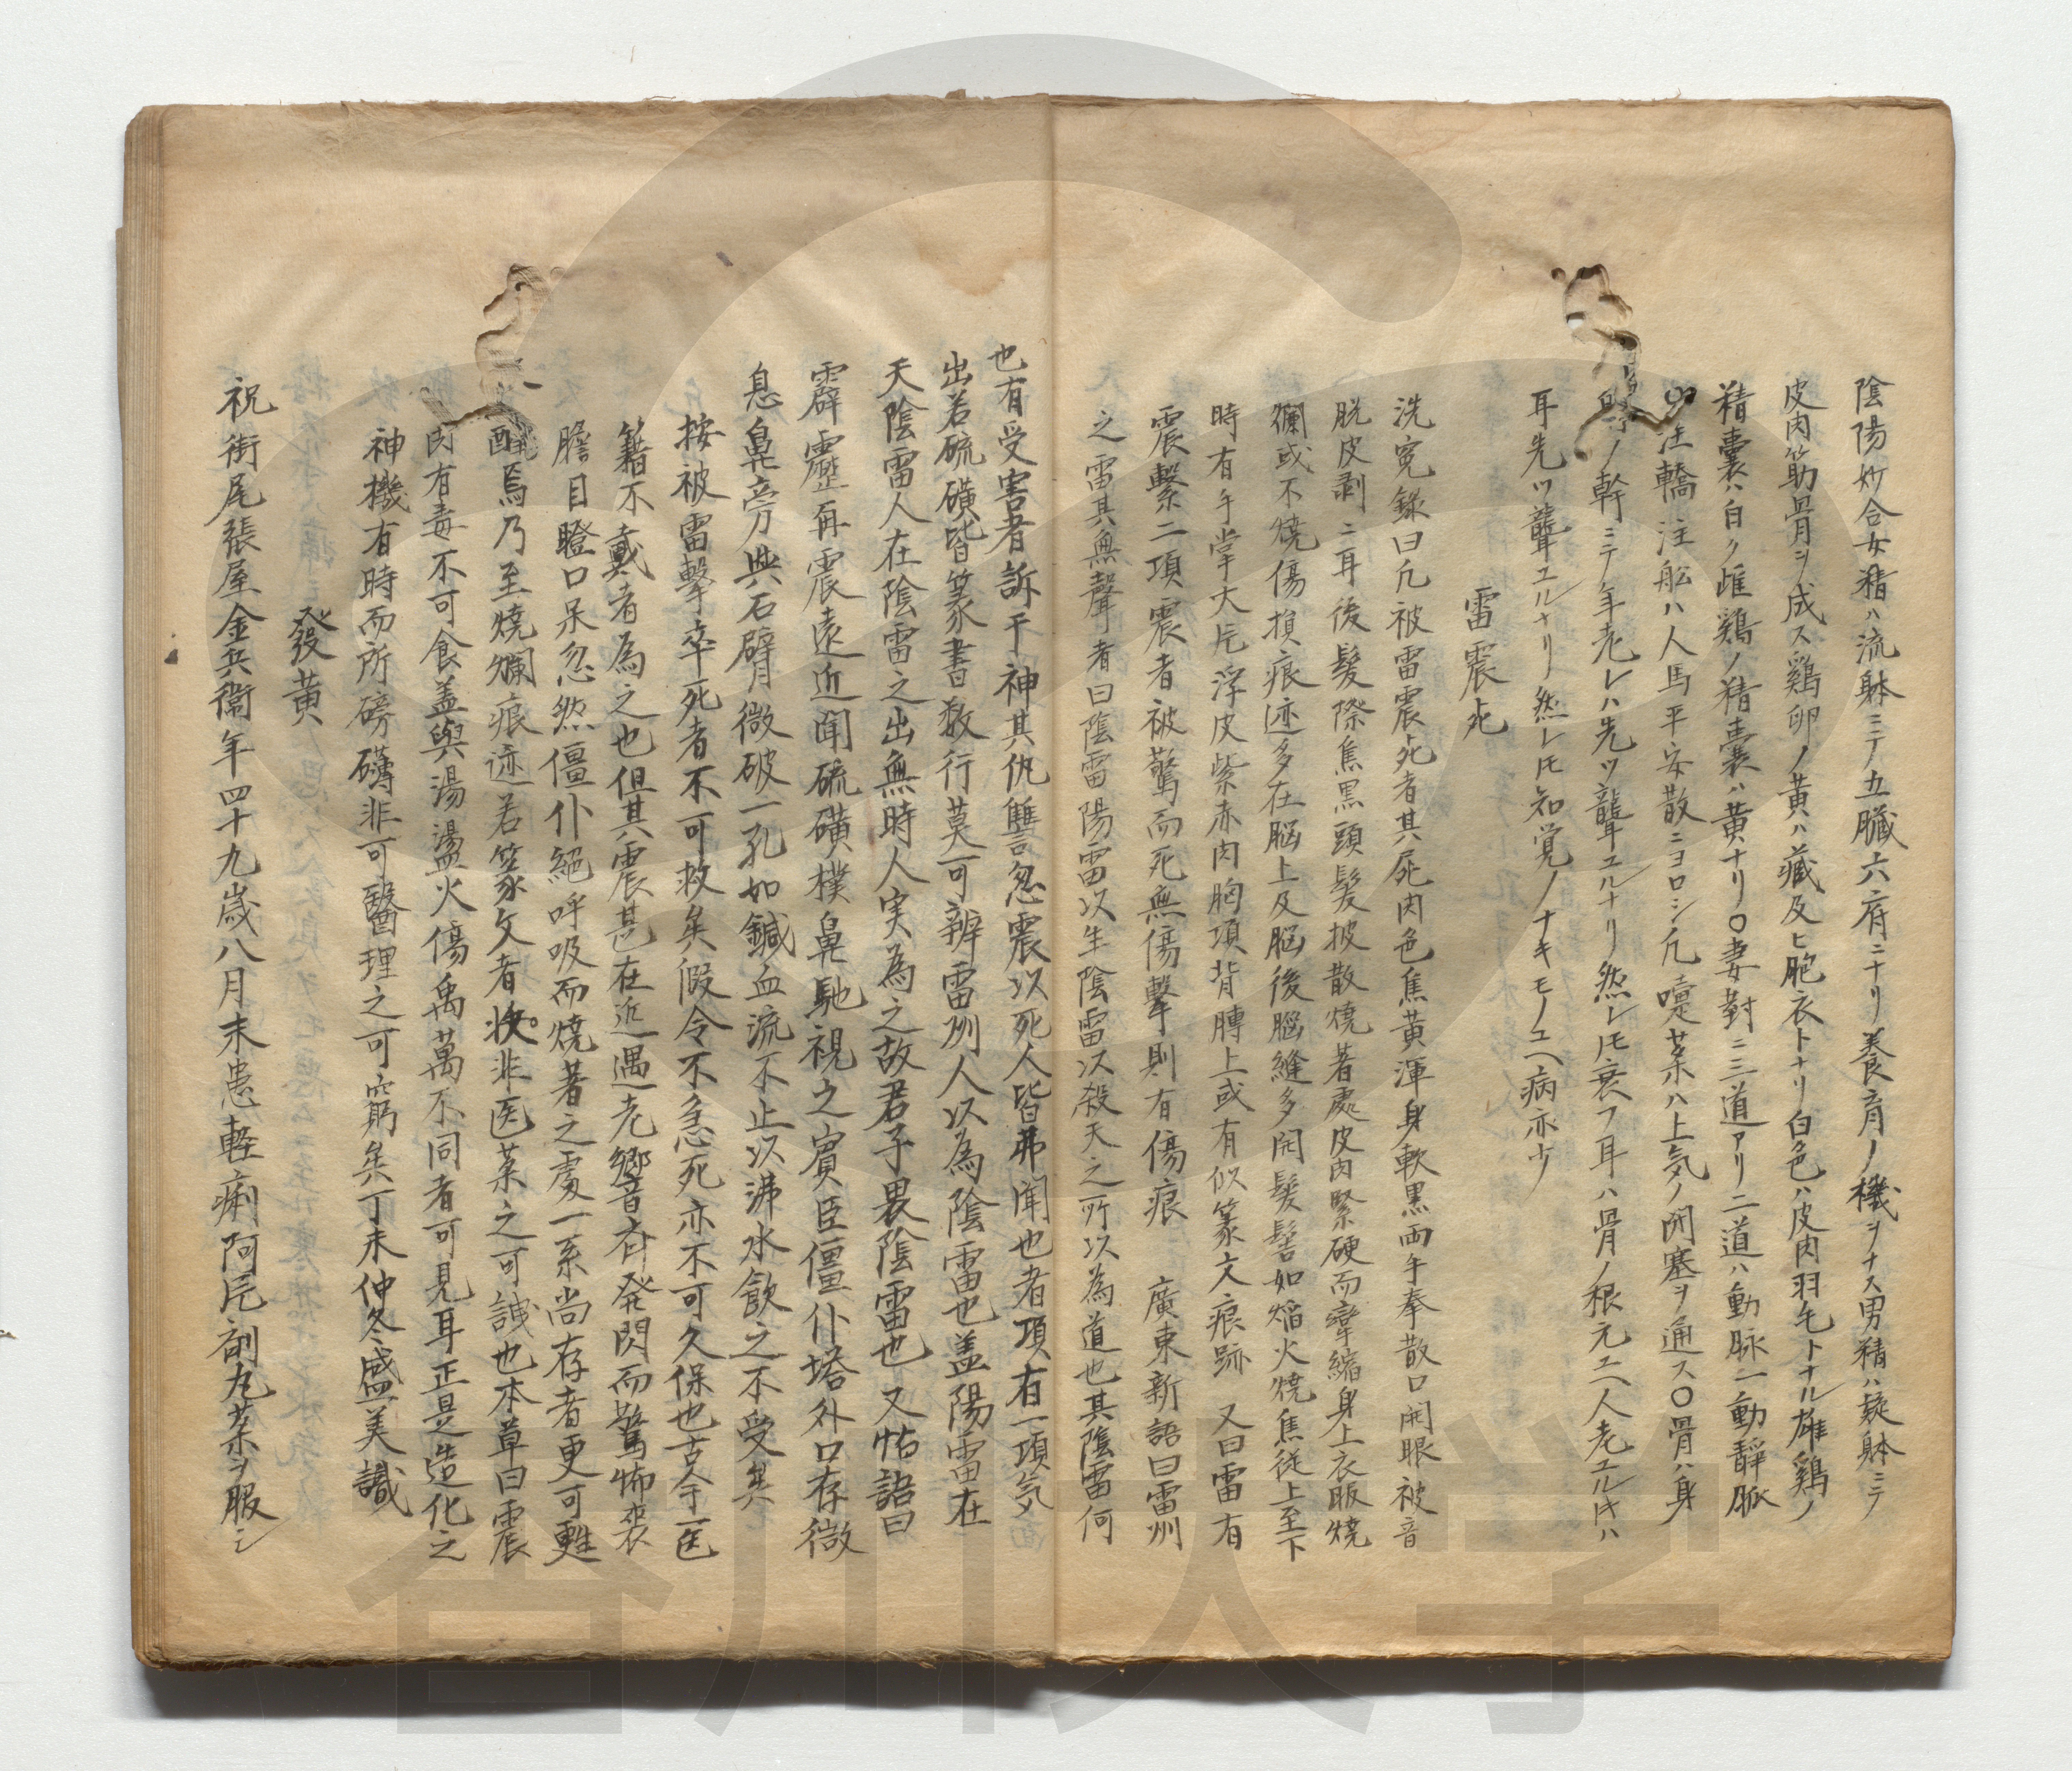 陰陽妙合女精ハ流躰ニテ五臓六府ニナリ養育ノ機ヲナス男精ハ疑躰ニテ
皮肉筋骨ヲ成ス鶏卵ノ黄ハ藏及ヒ胞衣トナリ白色ハ皮肉羽毛トナル雄鶏ノ
精嚢ハ白ク雌鶏ノ精嚢ハ黄ナリ〇妻對ニ三道アリ二道ハ動脉一動靜脈
注轎注舩ハ人馬平安散ニヨロシ凢嚔薬ハ上気ノ閉塞ヲ通ス〇骨ハ身
ノ幹ニテ年老レハ先ツ聾ユルナリ然レ𪜈衰フ耳ハ骨ノ根元ユヘ人老ユル𪜈ハ
耳先ツ聾ユルナリ然レ𪜈知覚ノナキモノユヘ病亦少
雷震死
洗寃録曰凢被雷震死者其屍肉色焦黄渾身軟黒両手拳散口開眼被音
脱皮剥ニ耳後髪際焦黒頭髪披散焼著處皮肉緊硬而攣縮身上衣服焼
爛或不焼傷損痕迹多在脳上及脳後脳縫多開髪髻如焔火焼焦従上至下
時有手掌大片浮皮紫赤肉胸項背膊上或有似篆文痕跡　又曰雷有
震繋二項震者被驚而死無傷擊則有傷痕　廣東新語曰雷州
之雷其無聲者曰陰雷陽雷以生陰雷以殺天之所以為道也其陰雷何
也有受害者訴于神其仇讐忽震以死人皆弗聞也者項有一項気
出若硫磺皆篆書数行莫可辨雷州人以為陰雷也盖陽雷在
天陰雷人在陰雷之出無時人実為之故君子畏陰雷也　又怗語曰
霹靂再震遠近聞硫磺樸鼻馳視之賓臣僵仆塔外口存微
息鼻旁與石臂微破一孔如鍼血流不止以沸水飲之不受矣
按被雷擊卒死者不可救矣假令不急死亦不可久保也古今医
籍不載者為之也但其震甚在近遇光響音斉発閃而驚怖喪
膽目瞪口呆忽然僵仆絕呼吸而焼著之處一系尚存者更可甦
醒焉乃至焼爛痕迹若篆文者故非医薬之可誤也本草曰震
肉有毒不可食盖與湯盪火傷禹萬不同者可見耳正是造化之
神機有時而所磅礴非可醫理之可窮矣丁未仲冬盛美識
發黄
祝街尾張屋金兵衞年四十九歳八月末患軽痢阿片剤丸薬ヲ服シ